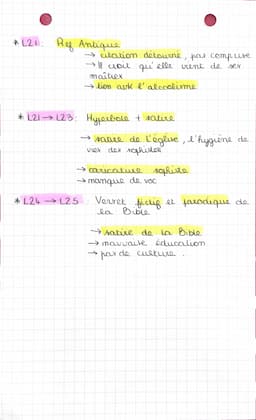 * L21 : Ref Antique
→ citation détourné, pas comprise
→ Il croit qu'elle vient de ser
maîtres
→ lien avk l'alcoolisme
* L21 → L23 : Hyperbole + satire
→ satire de l'église, l'hygiène de
vies des sophistes
→ caricature sophiste
→ manque de voc
* L24 → L25 : Verset fictif et parodique de
la Bible
→ satire de la Bible
→ mauvaise éducation
→ pas de culture.